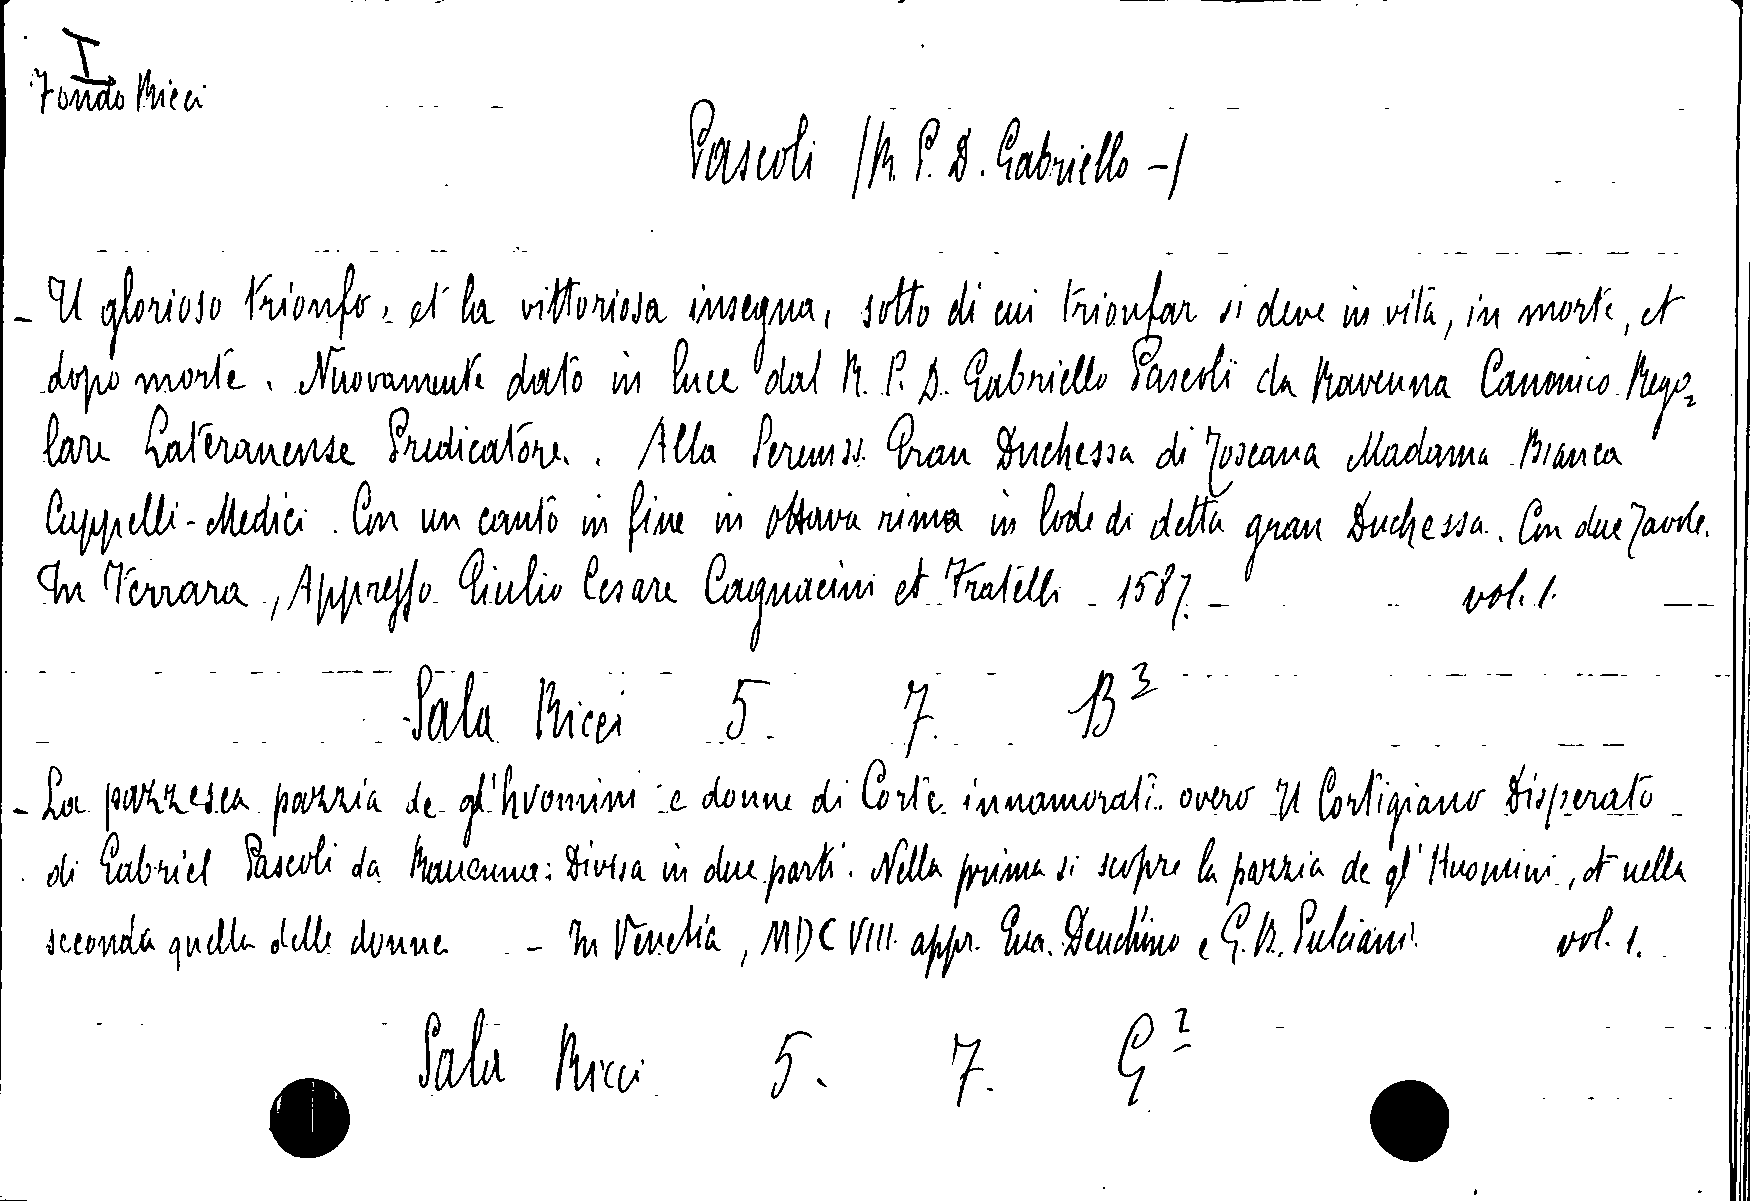 I
Fondo Ricci
Pascoli /R. P. D. Gabriello -/
- Il glorioso trionfo, et la vittoriosa insegna, sotto di cui trionfar si deve in vita, in morte, et
dopo morte. Nuovamente dato in luce dal R. P. D. Gabriello Pascoli da Ravenna Canonico Rego=
lare Lateranense Predicatore. Alla Sereniss. Gran Duchessa di Toscana Madama Bianca
Cappelli-Medici. Con un canto in fine in ottava rima in lode di detta gran Duchessa. Con due Tavole.
In Ferrara, Appresso Giulio Cesare Cagnacini et Fratelli 1587. - vol. 1.
Sala Ricci 5. 7. B³
- La pazzesca pazzia de gl'hvomini e donne di Corte innamorati overo Il Cortigiano Disperato
di Gabriel Pascoli da Ravenna: Divisa in due parti. Nella prima si scopre la pazzia de gl'Huomini, et nella
seconda quella delle donne - In Venetia, MDCVIII appr. Eva. Deuchino e G. B. Pulciani vol. 1.
Sala Ricci 5. 7. G²